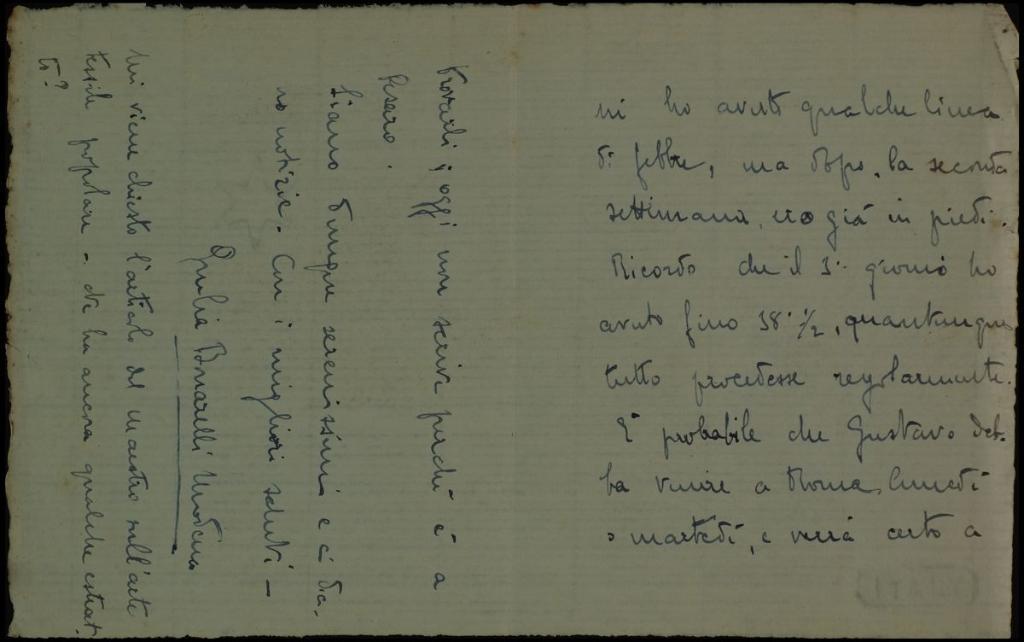 ni ho avuto qualche linea
di febbre, ma dopo la seconda
settimana, ero già in piedi.
Ricordo che il 3° giorno ho
avuto fino 38° ½, quantunque
tutto procedesse regolarmente.
È probabile che Gustavo deb-
ba venire a Roma lunedì
o martedì, e verrà certo a
trovarli; oggi non scrive perché è a
Pesaro.
Siano dunque serenissimi e ci dia-
no notizie. Con i migliori saluti -
Giulia Bonarelli Modena
Mi viene chiesto l'articolo del maestro sull'arte
tessile popolare - Ne ha ancora qualche estrat-
to?